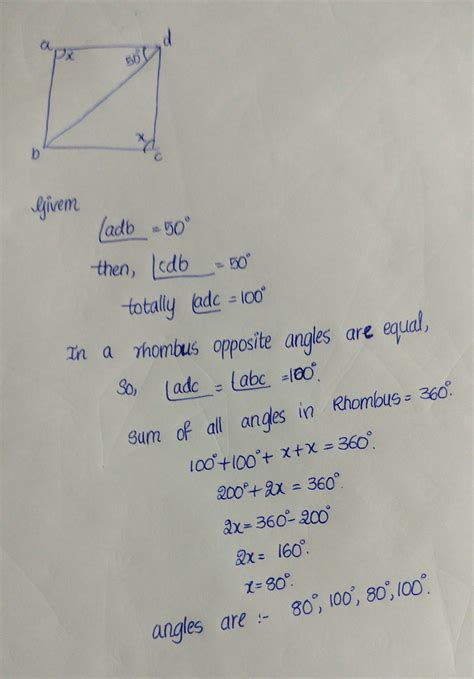 a d
x 50°
x
b c
Givem
∠adb = 50°
then, ∠cdb = 50°
totally ∠adc = 100°
In a rhombus opposite angles are equal,
So, ∠adc = ∠abc = 100°.
sum of all angles in Rhombus = 360°.
100°+100°+ x+x = 360°.
200°+2x = 360°.
2x = 360°-200°
2x = 160°.
x = 80°.
angles are :- 80°, 100°, 80°, 100°.